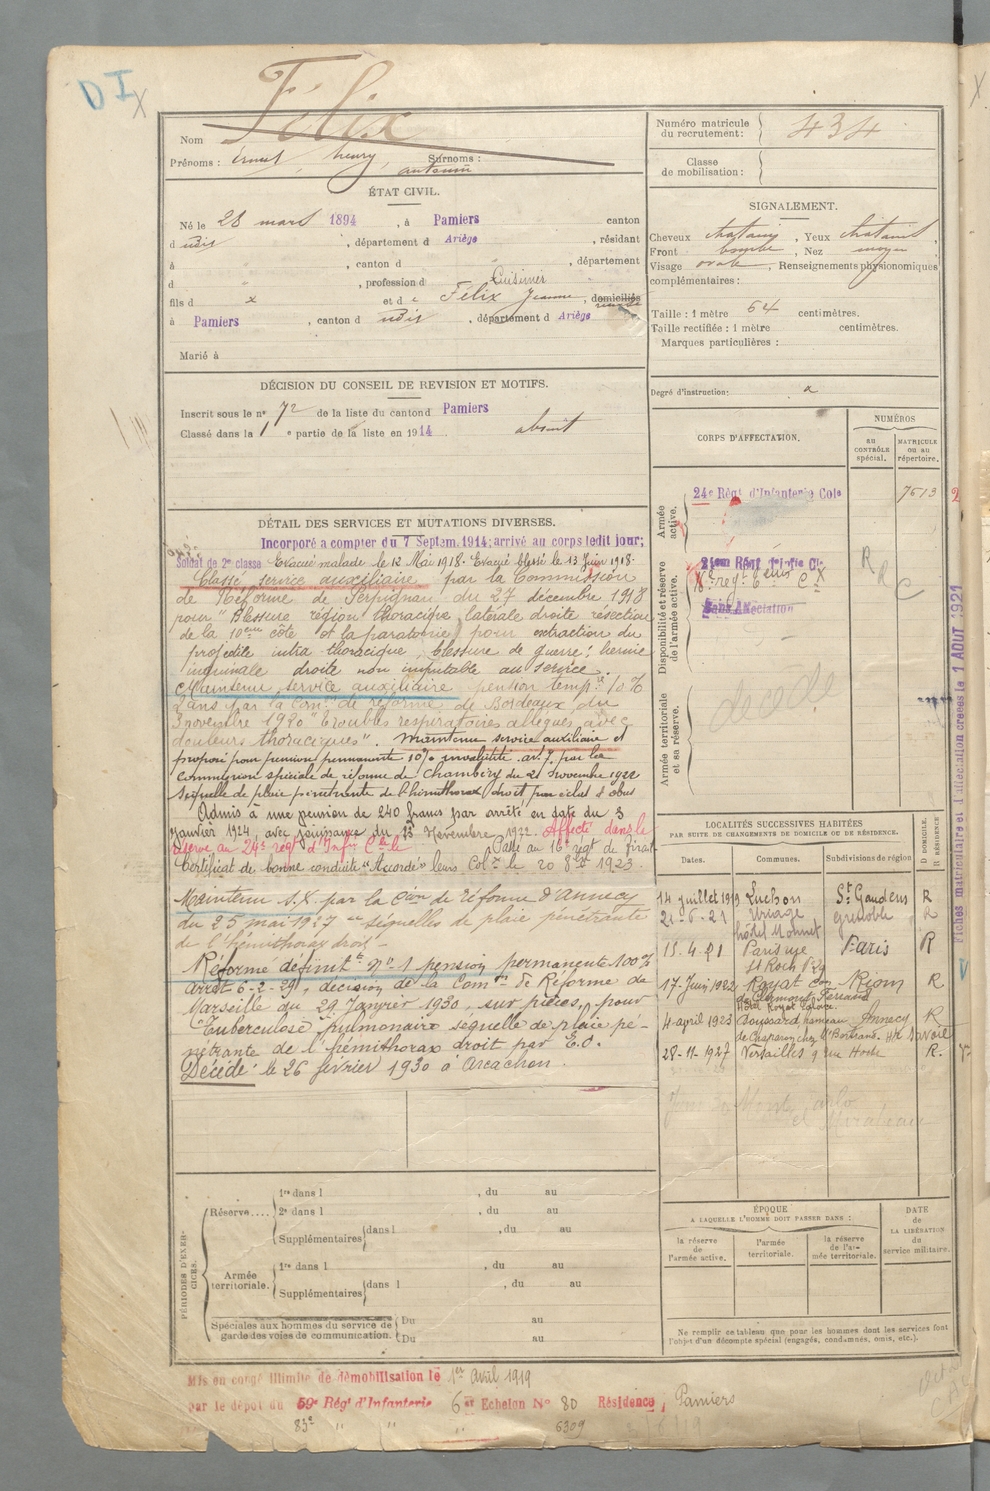 DI X
Félix
Nom
Prénoms : Ernest henry Surnoms :
antonin
ÉTAT CIVIL.
Né le 28 mars 1894, à Pamiers canton
d udit, département d Ariège, résidant
à " , canton d " , département
d " , profession d Cuisinier
fils d x et d e Félix Jeanne, domiciliés
à Pamiers, canton d udit, département d Ariège
Marié à
DÉCISION DU CONSEIL DE REVISION ET MOTIFS.
Inscrit sous le n° 72 de la liste du canton d Pamiers
Classé dans la 1e partie de la liste en 1914 absent
DÉTAIL DES SERVICES ET MUTATIONS DIVERSES.
Incorporé a compter du 7 Septem. 1914; arrivé au corps ledit jour;
Soldat de 2e classe Evacué malade le 12 Mai 1918. Evacué blessé le 13 Juin 1918.
Classé service auxiliaire par la Commission
de Réforme de Perpignan du 27 décembre 1918
pour "Blessure région thoracique latérale droite résection
de la 10eme côte et laparatomie pour extraction du
projectile intra thoracique, blessure de guerre; hernie
inguinale droite non imputable au service.
Maintenu service auxiliaire pension tempre 10%
2 ans par la Comon de réforme de Bordeaux du
3 novembre 1920 "troubles respiratoires allégués avec
douleurs thoraciques". Maintenu service auxiliaire et
proposé pour pension permanente 10% invalidité. av. f. par la
Commission spéciale de réforme de Chambéry du 21 novembre 1922
Séquelle de plaie pénétrante de l'hémithorax droit par éclat d'obus
Admis à une pension de 240 francs par arrêté en date du 3
Janvier 1924, avec jouissance du 13 Novembre 1922. Affecté dans la
réserve au 24e régt d'Infie Cle le Passé au 16e régt de tirail
Certificat de bonne conduite "Accordé"
Maintenu S.X. par la Cion de réforme d'Annecy
du 25 mai 1927 "séquelles de plaie pénétrante
de l'hémithorax droit"
Réformé définitt n° 1 pension permanente 100%
arrêt. 6-2-29, décision de la Comon de Réforme de
Marseille du 29 Janvier 1930, sur pièces, pour
"Tuberculose pulmonaire séquelle de plaie pé-
nétrante de l'hémithorax droit par E.O.
Décédé : le 26 février 1930 à Arcachon.
PÉRIODES D'EXERCICES.
Réserve.... 1re dans l , du au
2e dans l , du au
Supplémentaires dans l , du au
Armée territoriale. 1re dans l , du au
Supplémentaires dans l , du au
Spéciales aux hommes du service de garde des voies de communication. Du au
Du au
Mis en congé illimité de démobilisation le 1er avril 1919
par le dépôt du 59e Régt d'Infanterie 6e Echelon N° 80 Résidence, Pamiers
83e " " " 6309
Numéro matricule du recrutement : 434
Classe de mobilisation :
SIGNALEMENT.
Cheveux chatains, Yeux chatains,
Front bombé, Nez moyen
Visage ovale, Renseignements physionomiques
complémentaires :
Taille : 1 mètre 64 centimètres.
Taille rectifiée : 1 mètre centimètres.
Marques particulières :
Degré d'instruction :
CORPS D'AFFECTATION.
NUMÉROS
au contrôle spécial.
MATRICULE ou au répertoire.
Armée active.
24e Régt d'Infanterie Cole 7613
Disponibilité et réserve de l'armée active.
24em Régt d'Infie Cle
Sans Affectation
R R C
Armée territoriale et sa réserve.
décédé
LOCALITÉS SUCCESSIVES HABITÉES
PAR SUITE DE CHANGEMENTS DE DOMICILE OU DE RÉSIDENCE.
Dates. Communes. Subdivisions de région D DOMICILE. R RÉSIDENCE
14 juillet 1919 Luchon St Gaudens R
21-6-21 Uriage Grenoble R
hôtel Monnet
15.4.21 Paris rue Paris R
St Roch
17 Juin 1922 Royat con Riom R
de Clermont-Ferrand
4 april 1923 Annecy R
28-11-1927 Versailles 9 rue Hoche R.
ÉPOQUE
A LAQUELLE L'HOMME DOIT PASSER DANS :
DATE de LA LIBÉRATION du service militaire.
la réserve de l'armée active.
l'armée territoriale.
la réserve de l'armée territoriale.
Ne remplir ce tableau que pour les hommes dont les services font
l'objet d'un décompte spécial (engagés, condamnés, omis, etc.).
Fiches matriculaire et d'affectation créées le 1 AOUT 1921